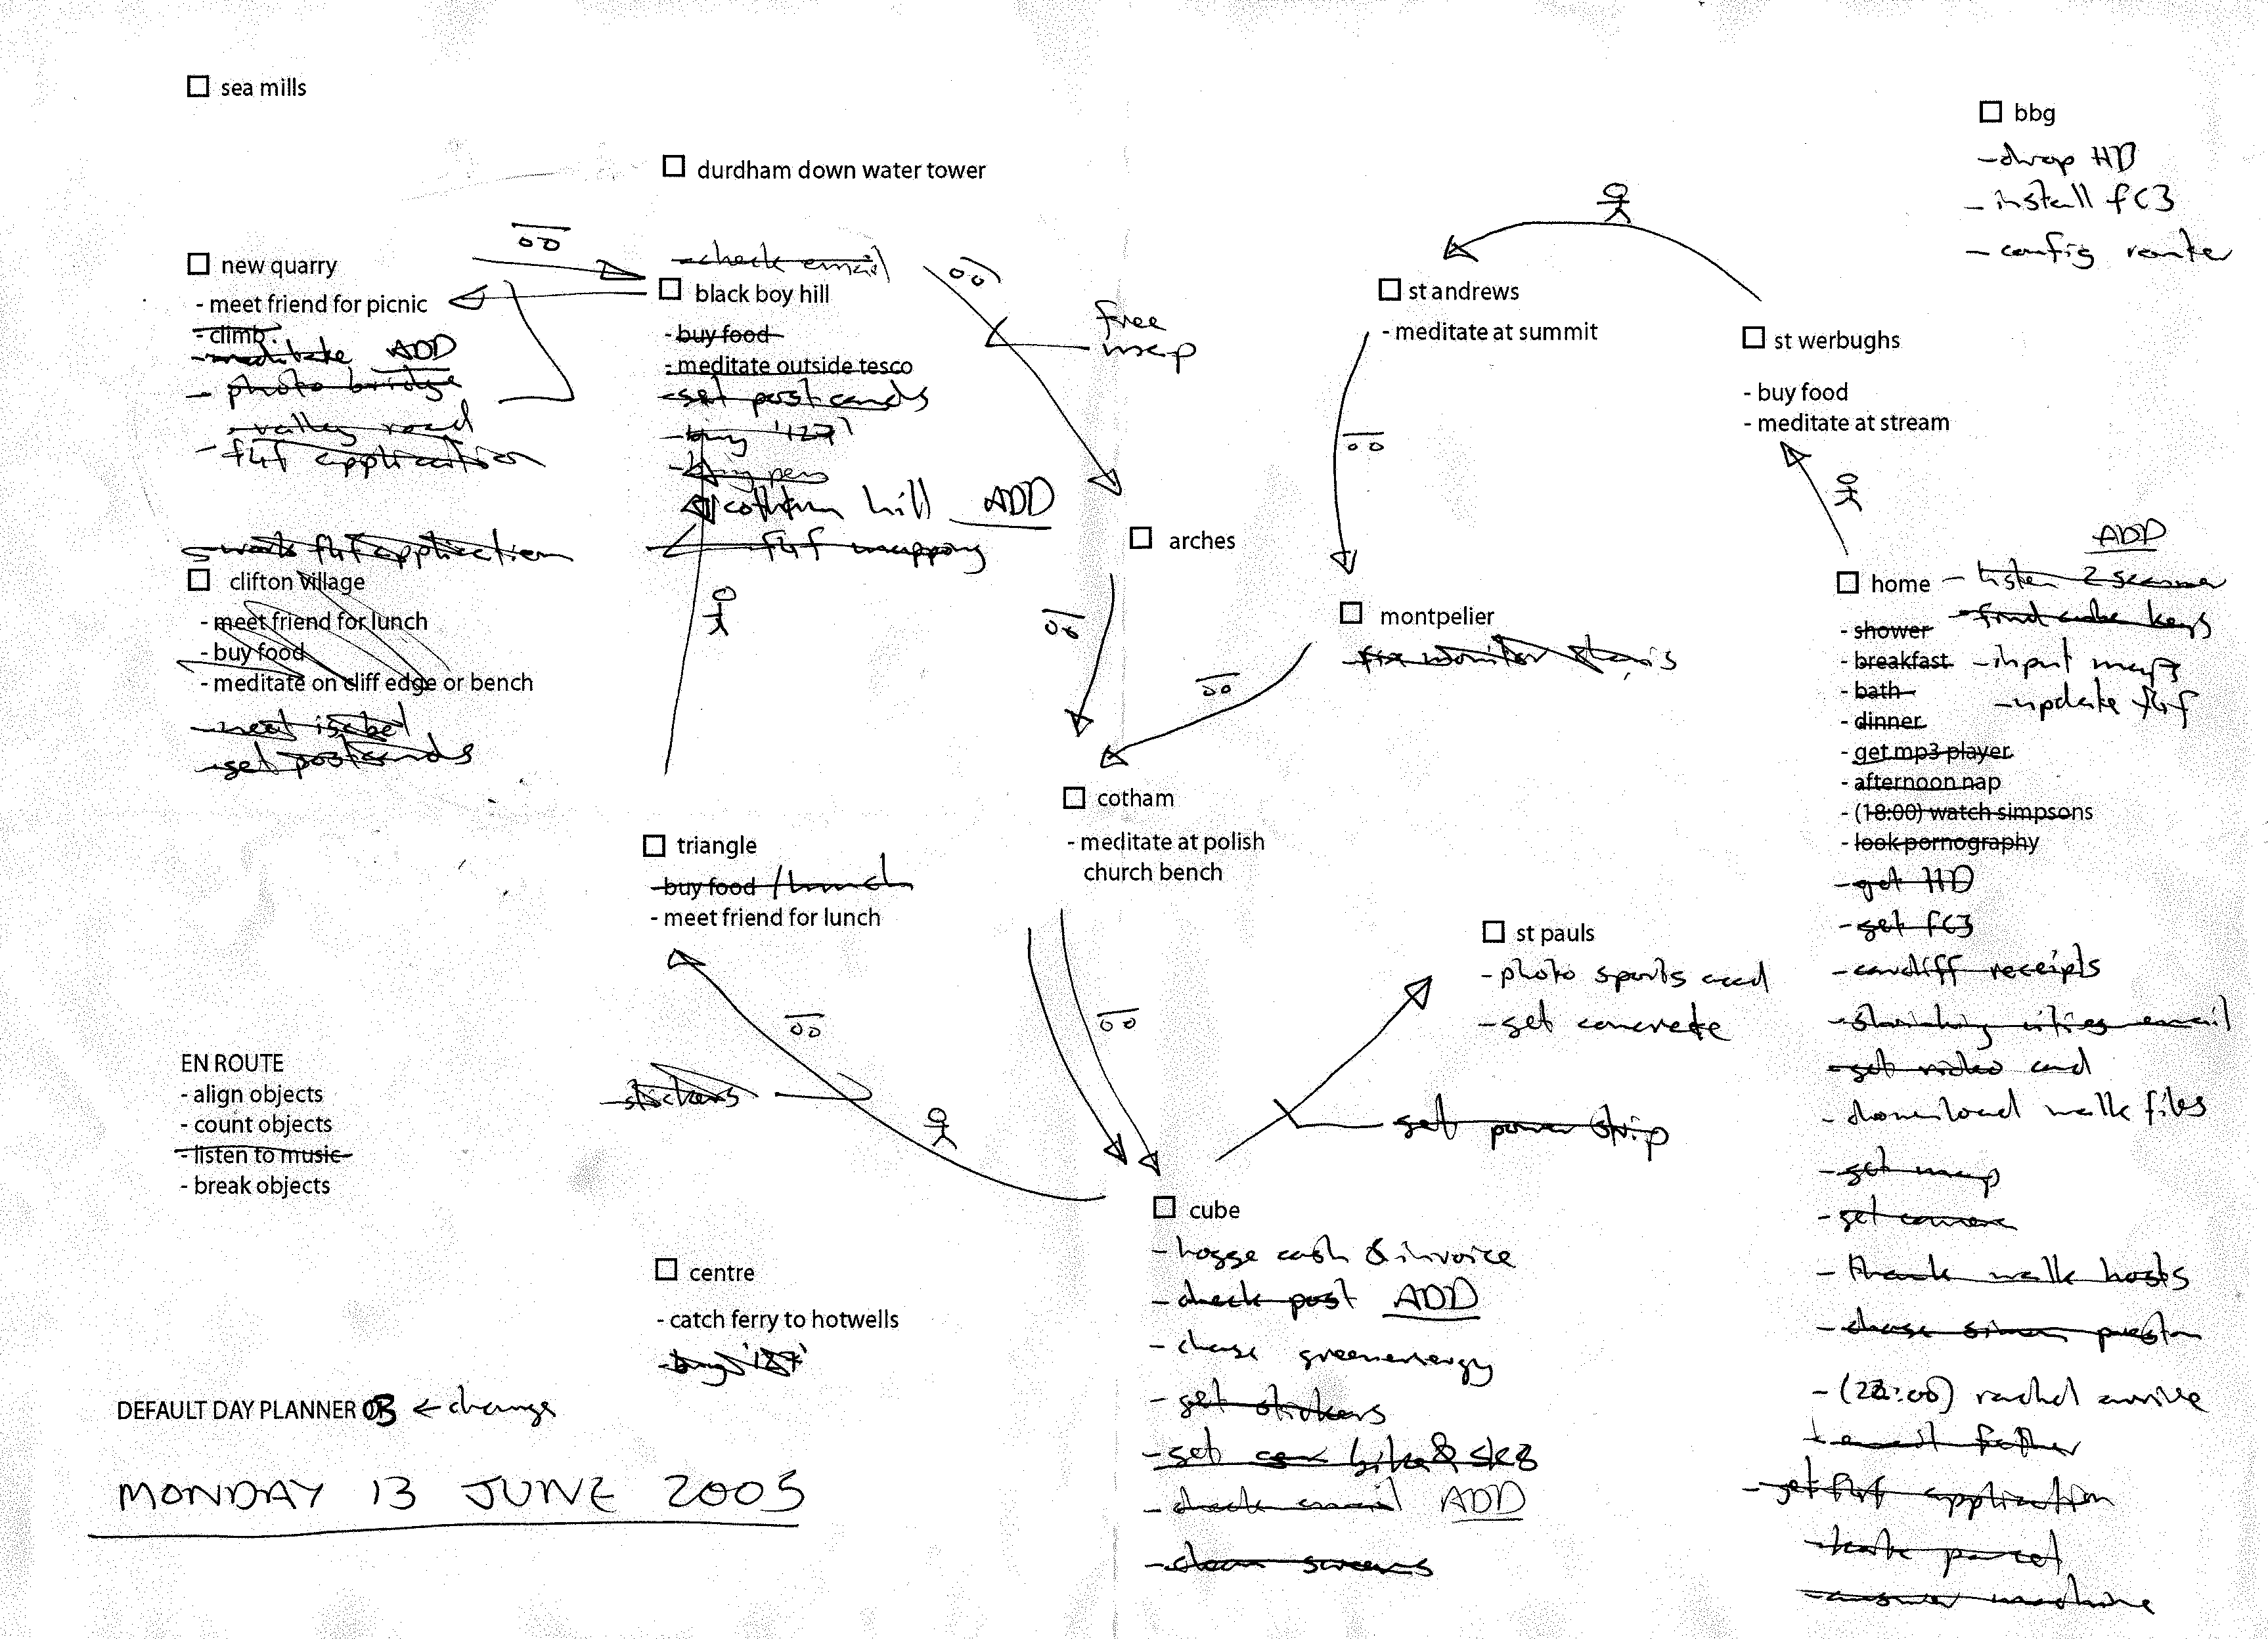 sea mills
durdham down water tower
new quarry
- meet friend for picnic
- climb
- meditate ADD
- photo bridge
- valley road
- f4f application
- check email
black boy hill
- buy food
- meditate outside tesco
- get postcards
- buy '127'
- buy pens
cotham hill ADD
f4f mapping
free
map
st andrews
- meditate at summit
st werbughs
- buy food
- meditate at stream
bbg
- drop HD
- install fC3
- config router
- work f4f application
clifton village
- meet friend for lunch
- buy food
- meditate on cliff edge or bench
- meet isabel
- get postcards
arches
montpelier
- fix monitor
ADD
home
- listen 2
- find cube keys
- input maps
- update f4f
- shower
- breakfast
- bath
- dinner
- get mp3 player
- afternoon nap
- (18:00) watch simpsons
- look pornography
- get HD
- get fC3
- cardiff receipts
- shrinking cities email
- get video card
- download walk files
- get map
- get camera
- thank walk hosts
- chase simon preston
- (22:00) rachel arrive
- email father
- get f4f application
- take parcel
- answer machine
triangle
- buy food / lunch
- meet friend for lunch
cotham
- meditate at polish
church bench
st pauls
- photo sports
- get concrete
- get power strip
- stickers
EN ROUTE
- align objects
- count objects
- listen to music
- break objects
centre
- catch ferry to hotwells
- buy
cube
- hogge cash & invoice
- check post ADD
- chase greenenergy
- get stickers
- get bike & sk8
- check email ADD
- clean screens
DEFAULT DAY PLANNER 03 ← change
MONDAY 13 JUNE 2005